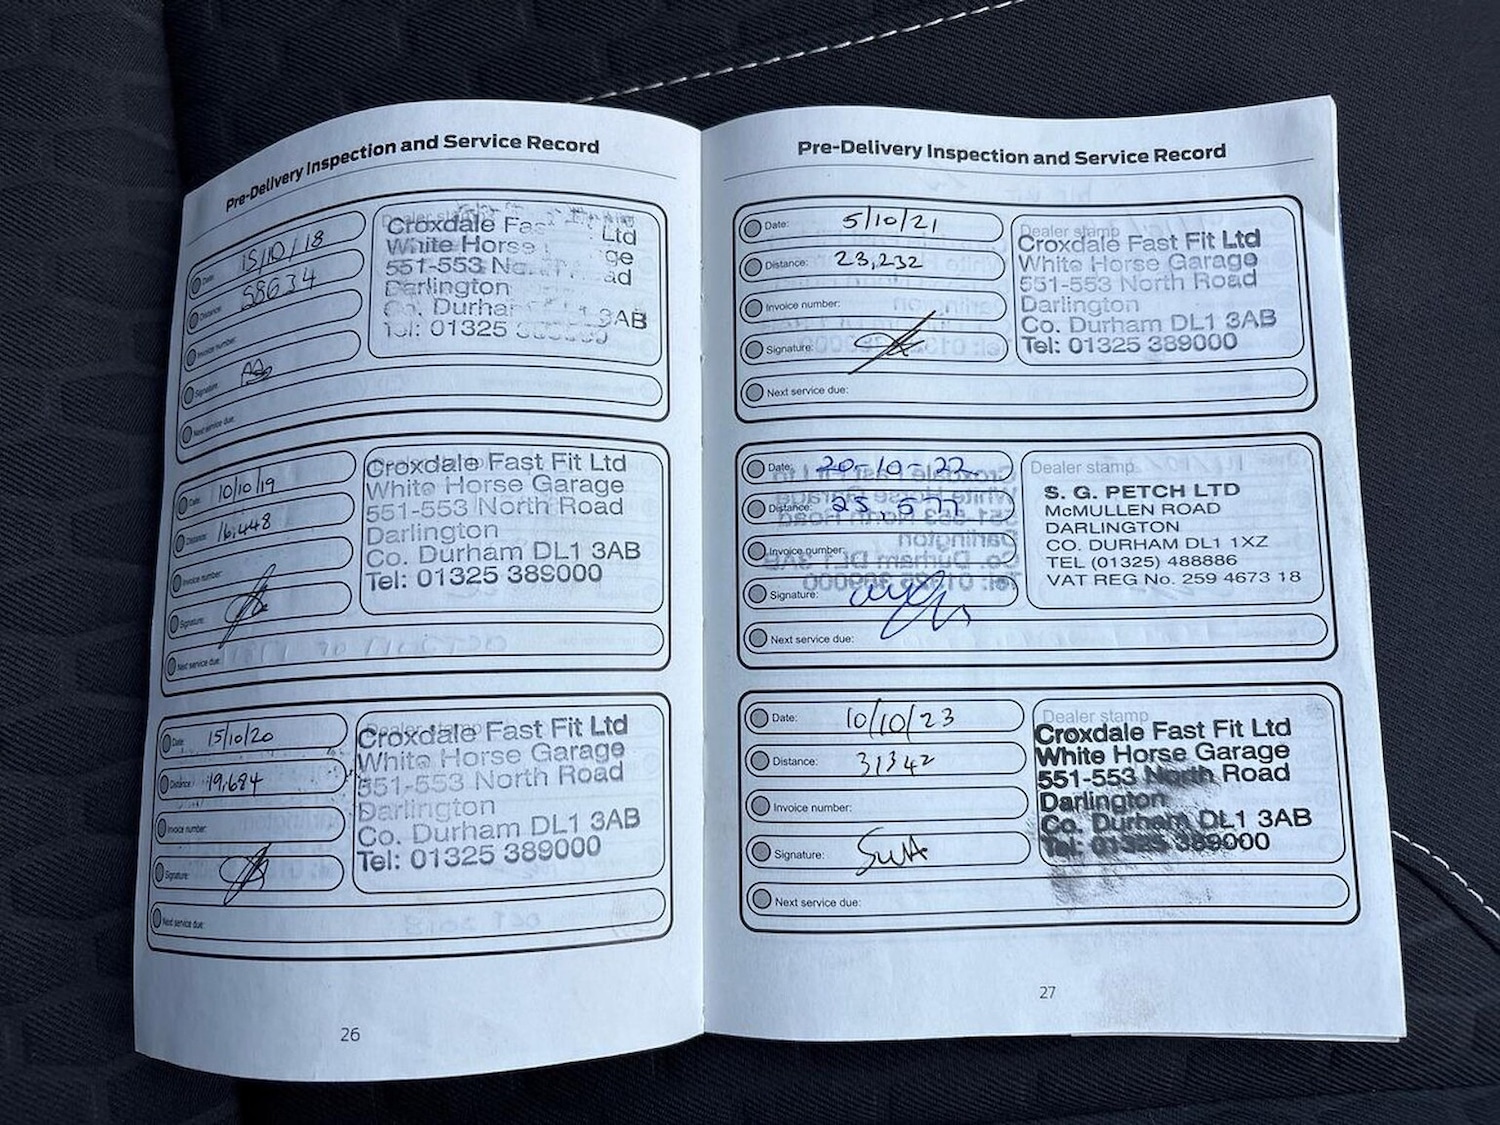 Pre-Delivery Inspection and Service Record
Date: 15/10/18
Distance: 58634
Invoice number:
Signature:
Next service due:
Dealer stamp
Croxdale Fas Ltd
White Horse ge
551-553 No ad
Darlington
Co. Durha 3AB
Tel: 01325
Date: 10/10/19
Distance: 16,448
Invoice number:
Signature:
Next service due:
Croxdale Fast Fit Ltd
White Horse Garage
551-553 North Road
Darlington
Co. Durham DL1 3AB
Tel: 01325 389000
Date: 15/10/20
Distance: 19,684
Invoice number:
Signature:
Next service due:
Dealer stamp
Croxdale Fast Fit Ltd
White Horse Garage
551-553 North Road
Darlington
Co. Durham DL1 3AB
Tel: 01325 389000
26
Pre-Delivery Inspection and Service Record
Date: 5/10/21
Distance: 23,232
Invoice number:
Signature:
Next service due:
Dealer stamp
Croxdale Fast Fit Ltd
White Horse Garage
551-553 North Road
Darlington
Co. Durham DL1 3AB
Tel: 01325 389000
Date: 20-10-22
Distance:
Invoice number:
Signature:
Next service due:
Dealer stamp
S. G. PETCH LTD
McMULLEN ROAD
DARLINGTON
CO. DURHAM DL1 1XZ
TEL (01325) 488886
VAT REG No. 259 4673 18
Date: 10/10/23
Distance: 31342
Invoice number:
Signature:
Next service due:
Dealer stamp
Croxdale Fast Fit Ltd
White Horse Garage
551-553 North Road
Darlington
Co. Durham DL1 3AB
Tel: 01325 389000
27